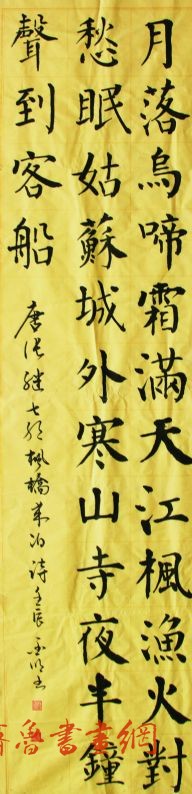 月落烏啼霜滿天江楓漁火對
愁眠姑蘇城外寒山寺夜半鐘
聲到客船
唐張繼七絕楓橋夜泊詩壬辰
魯書畫網